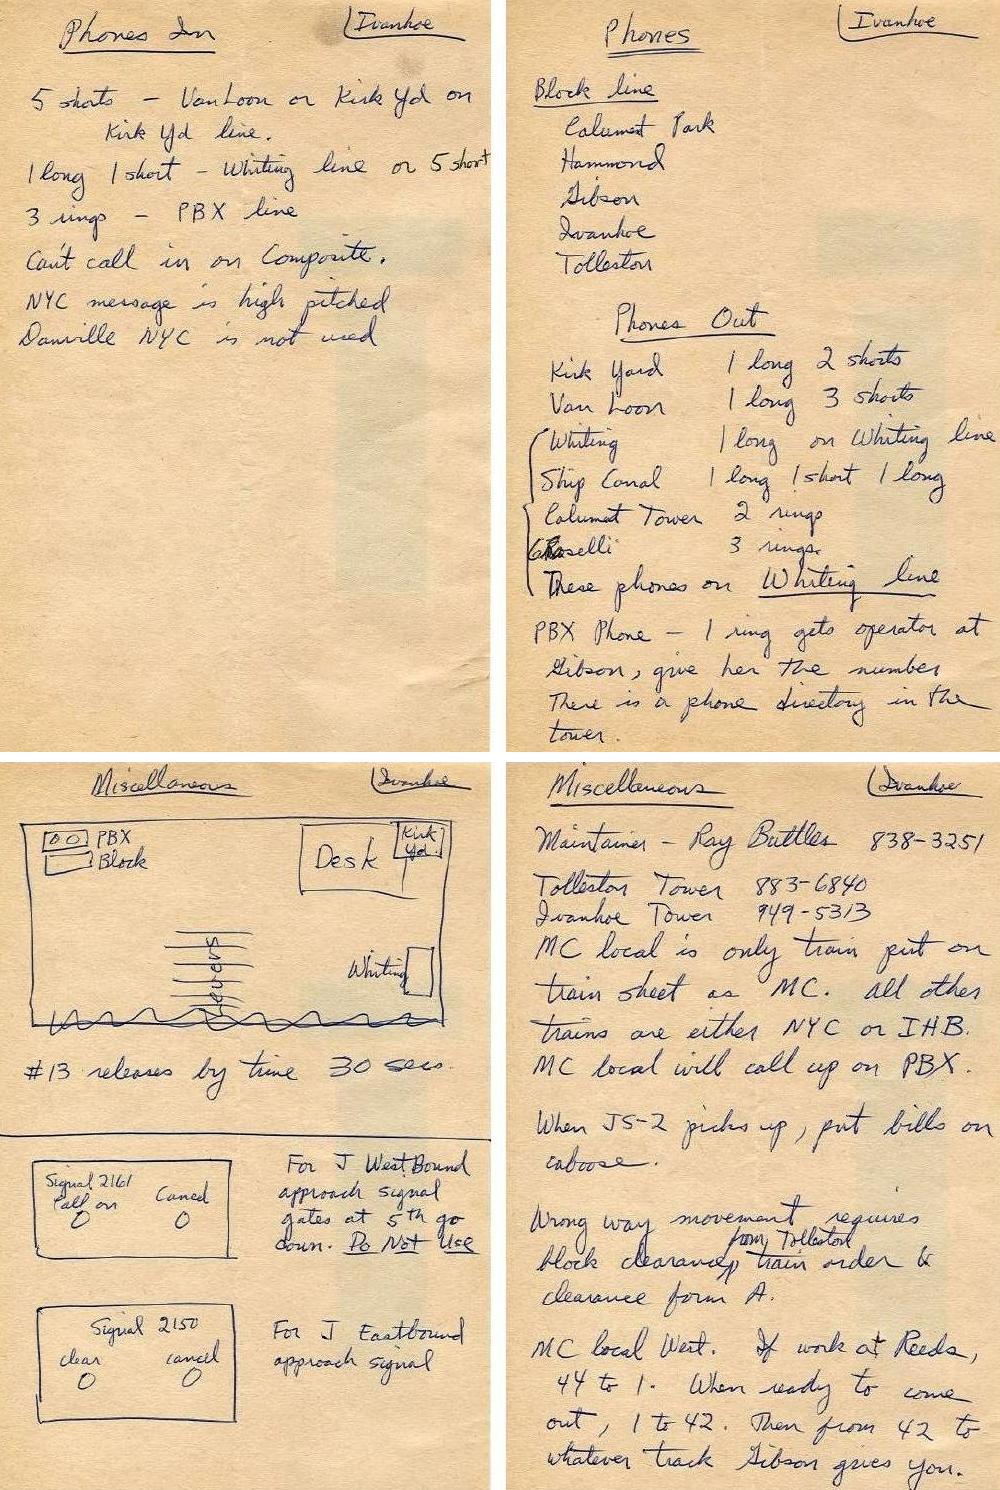 Phones In
Ivanhoe
5 shorts - Van Loon or Kirk Yd on
Kirk Yd line.
1 long 1 short - Whiting line or 5 short
3 rings - PBX line
Can't call in on Composite.
NYC message is high pitched
Danville NYC is not used
Phones
Ivanhoe
Block line
Calumet Park
Hammond
Gibson
Ivanhoe
Tolleston
Phones Out
Kirk Yard 1 long 2 shorts
Van Loon 1 long 3 shorts
Whiting 1 long on Whiting line
Ship Canal 1 long 1 short 1 long
Calumet Tower 2 rings
3 rings.
These phones on Whiting line
PBX Phone - 1 ring gets operator at
Gibson, give her the number
There is a phone directory in the
tower.
Miscellaneous
Ivanhoe
PBX
Block
Desk
Kirk
Yd.
Levers
Whiting
#13 releases by time 30 secs.
Signal 2161
Call on Cancel
For J WestBound
approach signal
gates at 5th go
down. Do Not Use
Signal 2150
clear cancel
For J Eastbound
approach signal
Miscellaneous
Ivanhoe
Maintainer - Ray Buttles 838-3251
Tolleston Tower 883-6840
Ivanhoe Tower 949-5313
MC local is only train put on
train sheet as MC. All other
trains are either NYC or IHB.
MC local will call up on PBX.
When JS-2 picks up, put bills on
caboose.
Wrong way movement requires
from Tolleston
block clearance, train order &
clearance form A.
MC local West. If work at Reeds,
44 to 1. When ready to come
out, 1 to 42. Then from 42 to
whatever track Gibson gives you.